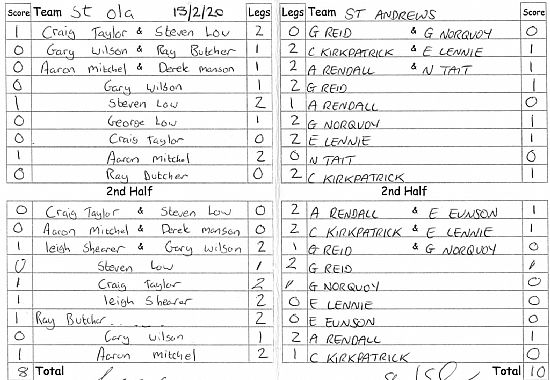 Score Team St Ola 13/2/20 Legs Legs Team ST ANDREWS Score
1 Craig Taylor & Steven Low 2 0 G REID & G NORQUOY 0
0 Gary Wilson & Ray Butcher 1 2 C KIRKPATRICK & E LENNIE 1
0 Aaron mitchel & Derek manson 1 2 A RENDALL & N TAIT 1
0 Gary Wilson 1 2 G REID 1
1 Steven Low 2 1 A RENDALL 0
0 George Low 1 2 G NORQUOY 1
0 Craig Taylor 0 2 E LENNIE 1
1 Aaron mitchel 2 0 N TAIT 0
0 Ray Butcher 0 2 C KIRKPATRICK 1
2nd Half 2nd Half
0 Craig Taylor & Steven Low 0 2 A RENDALL & E EUNSON 1
0 Aaron mitchel & Derek manson 0 2 C KIRKPATRICK & E LENNIE 1
1 leigh Shearer & Gary Wilson 2 1 G REID & G NORQUOY 0
0 Steven Low 1 2 G REID 1
1 Craig Taylor 2 1 G NORQUOY 0
1 leigh Shearer 2 0 E LENNIE 0
1 Ray Butcher 2 0 E EUNSON 0
0 Gary Wilson 1 2 A RENDALL 1
1 Aaron mitchel 2 1 C KIRKPATRICK 0
8 Total Total 10